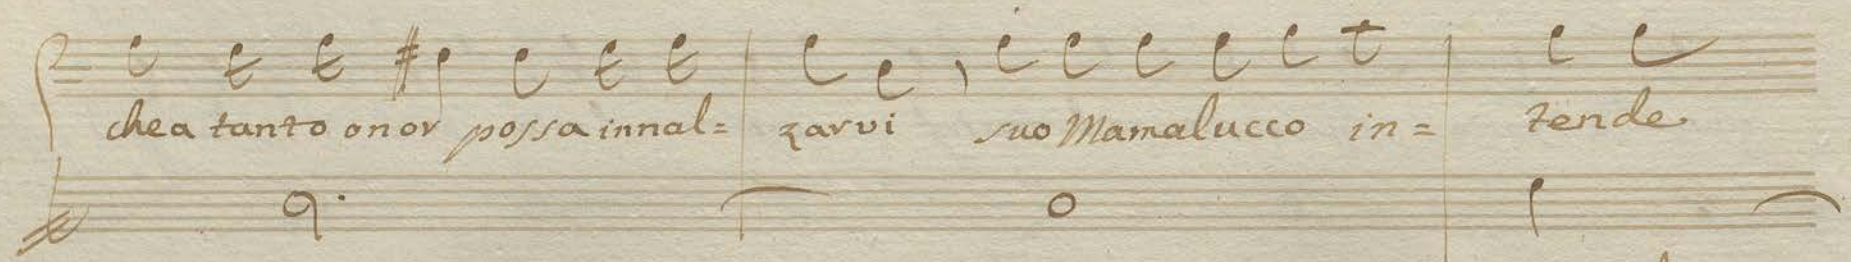 che a tanto onor possa innal= zarvi suo Mamalucco in= tende